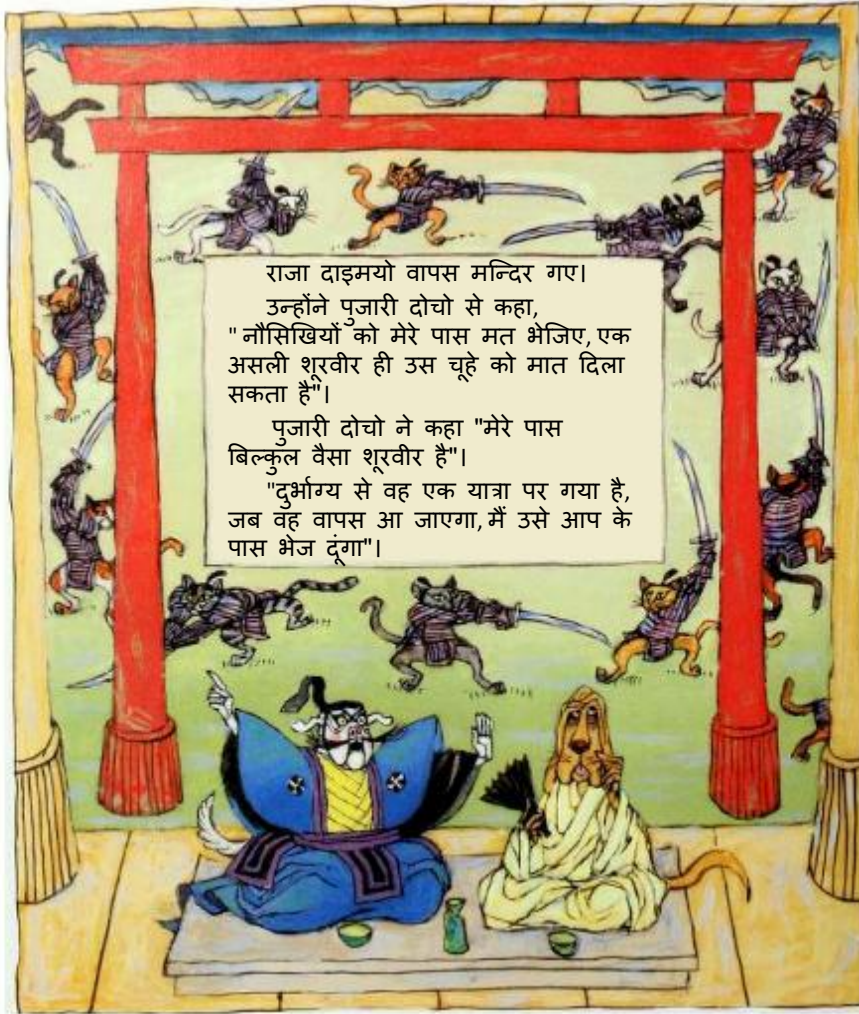 राजा दाइमयो वापस मन्दिर गए।
उन्होंने पुजारी दोचो से कहा,
" नौसिखियों को मेरे पास मत भेजिए, एक
असली शूरवीर ही उस चूहे को मात दिला
सकता है"।
पुजारी दोचो ने कहा "मेरे पास
बिल्कुल वैसा शूरवीर है"।
"दुर्भाग्य से वह एक यात्रा पर गया है,
जब वह वापस आ जाएगा, मैं उसे आप के
पास भेज दूंगा"।